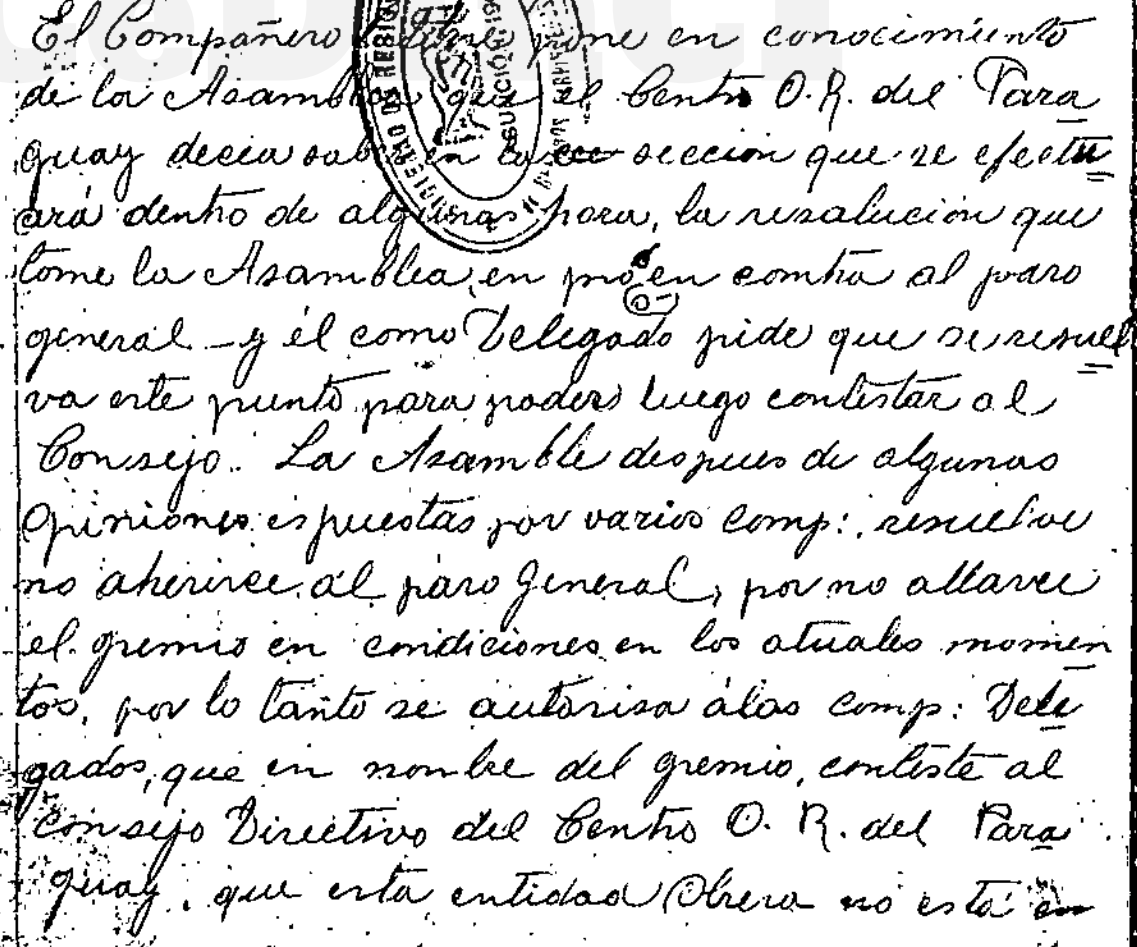 El Compañero pone en conocimiento
de la Asamblea que el Centro O.R. del Para
guay decea saber en la sección que se efectu
ará dentro de algunas hora, la resalución que
tome la Asamblea, en pro o en contra al paro
general - y él como Delegado pide que se resuel
va este punto para poder luego contestar al
Consejo. La Asamble despues de algunas
Opiniones espuestas por varios Comp: resuelve
no aherirce al paro General, por no allarce
el gremio en condiciones en los atuales momen
tos, por lo tanto se autorisa á los Comp: Dele
gados, que en nombre del gremio, conteste al
Consejo Directivo del Centro O. R. del Para
guay, que esta entidad Obrera no está en